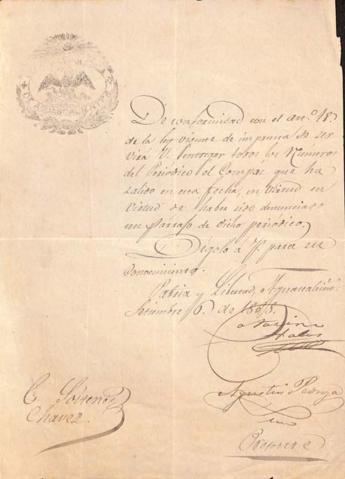 De conformidad con el arº. 18º
de la ley vigente de imprenta se ser
virá V. entregar todos los Numeros
del Periódico el Compas que ha
salido en esa fecha, en virtud en
virtud de haber sido denunciado
un párrafo de dicho periódico.
Digolo á V. para su
conocimiento.
Patria y Libertad,
Setiembre 6. de
Agustin
C.
Chavez.
Presente